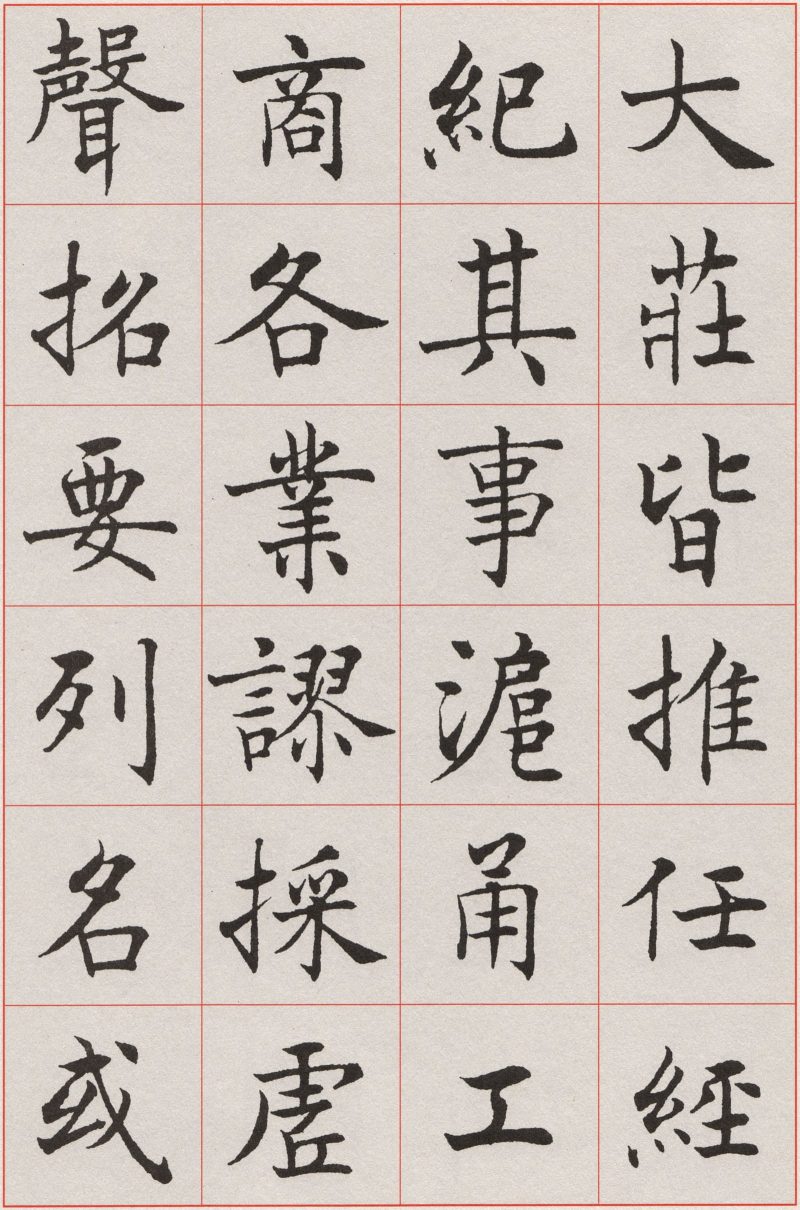 大莊皆推任經
紀其事滬甬工
商各業謬採虛
聲招要列名或